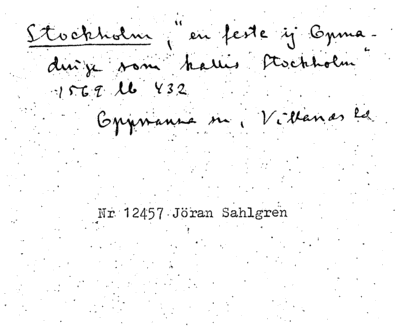 Stockholm, "en feste ij Opma-
dinge som kallis Stockholm"
1569 lb 432
Oppmanna sn, Villands hd
Nr 12457 Jöran Sahlgren